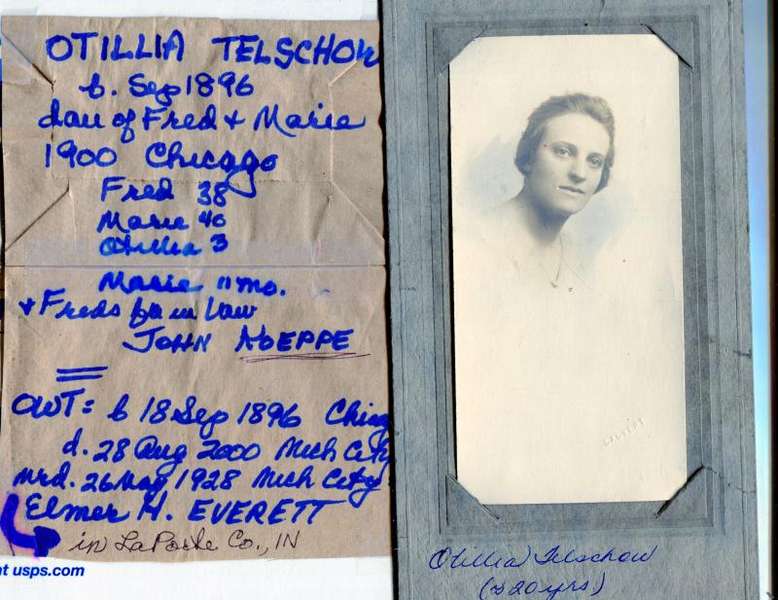 OTILLIA TELSCHOW
b. Sep 1896
dau of Fred + Marie
1900 Chicago
Fred 38
Marie 40
Otillia 3
Marie 11 mo.
+ Freds fa in law
JOHN ADEPPE
OWT: b 18 Sep 1896 Chicag
d. 28 Aug 2000 Mich City
mrd. 26 May 1928 Mich City
Elmer H. EVERETT
in LaPorte Co., IN
nt usps.com
Otillia Telschow
20 yrs)